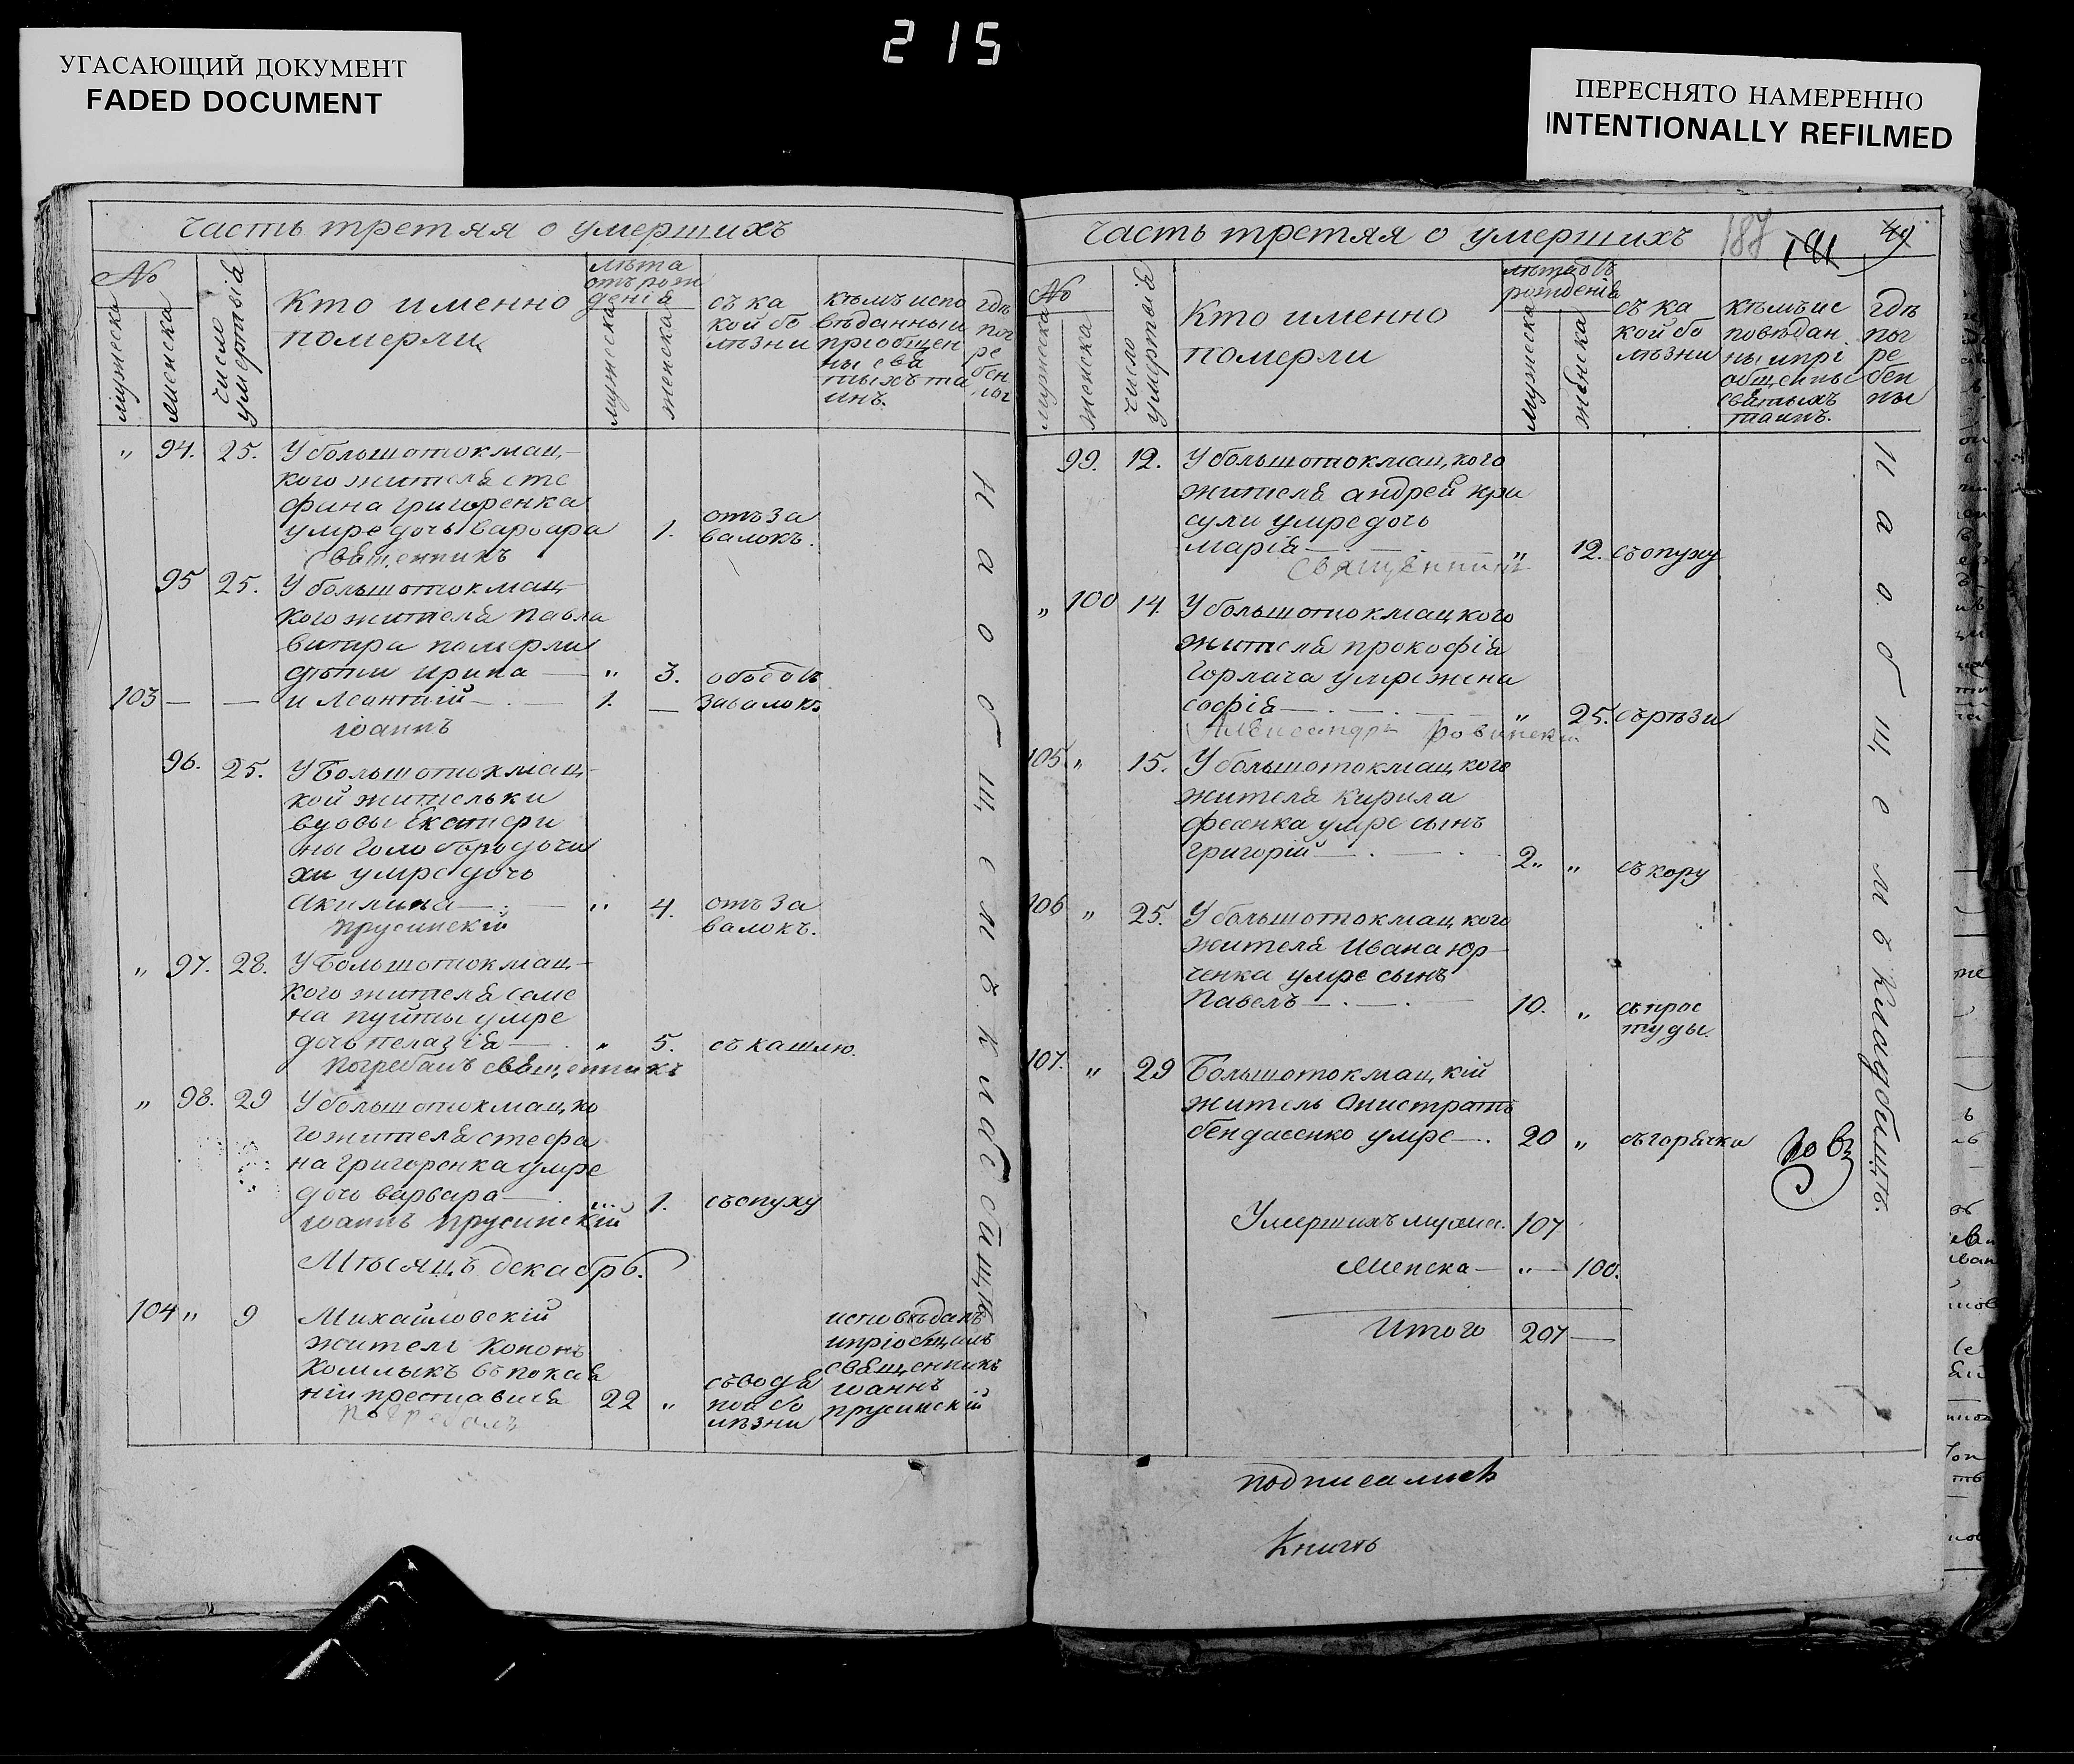 215
УГАСАЮЩИЙ ДОКУМЕНТ
FADED DOCUMENT
ПЕРЕСНЯТО НАМЕРЕННО
INTENTIONALLY REFILMED
часть третяя о умершихъ
№
мужеска
женска
число умертвія
Кто именно
померли
лѣта
отъ рож
денія
мужеска
женска
съ ка
кой бо
лѣзни
кѣмъ испо
вѣданныи
приобщен
ны свя
тыхъ та
инъ.
гдѣ
пог
ре
бен
ны
„ 94. 25. У большотокмац-
кого жителя сте
фана григоренка
умре дочь варвара 1. отъ за
валокъ.
священникъ
95 25. У большотокмац-
кого жителя павла
витра померли
дѣти ирина — „ 3. обѣ отъ
103 — — и леонтий — 1. — завалокъ
иоаннъ
96. 25. У Большотокмац-
кой жительки
вдовы Екатери
ны голобородчи
хи умре дочь
Акилина — „ 4. отъ за
валокъ.
прусинскій
„ 97. 28. У Большотокмац-
кого жителя семе
на пуйты умре
дочь пелагія — „ 5. съ кашлю.
погребалъ священникъ
„ 98. 29 У большотокмацко
го жителя стефа
на григоренка умре
дочь варвара — „ 1. съ опуху
иоаннъ прусинскій
Мѣсяцъ декабрь.
104 „ 9 Михайловскій
житель кононъ
комлыкъ въ покая
ніи преставися 22 „ съ водя
ной бо
лѣзни
исповѣданъ
и пріобщенъ
священникъ
иоаннъ
прусинскій
погребалъ
на общемъ кладбищѣ
часть третяя о умершихъ 187 191 49
№
мужеска
женска
число умертвія
Кто именно
померли
лѣта отъ
рожденія
мужеска
женска
съ ка
кой бо
лѣзни
кѣмъ ис
повѣдан
ны и прі
общены
святыхъ
таинъ.
гдѣ
пог
ре
бен
ны
99. 12. У большотокмацкого
жителя андрей кри
сули умре дочь
марія — „ 12. съ опуху
священникъ
„ 100 14. У большотокмацкого
жителя прокофія
горлача умре жена
софія — „ 25. съ рѣзи
Александръ ровинскій
105. „ 15. У большотокмацкого
жителя кирила
фесенка умре сынъ
григорій — 2 „ „ съ кору
106 „ 25. У большотокмацкого
жителя ивана юр
ченка умре сынъ
павелъ — 10. „ съ прос
туды.
107. „ 29 Большотокмацкій
житель Онистратъ
бендасенко умре — 20 „ съ горячки
на общемъ кладбищѣ.
Умершихъ мужска. 107
Женска — „ — 100.
Итого 207 —
подписались
Книгѣ